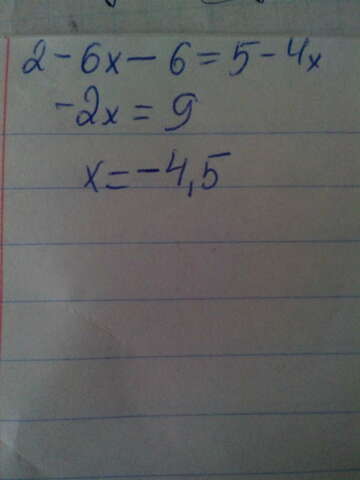 2-6x-6=5-4x
-2x=9
x=-4,5